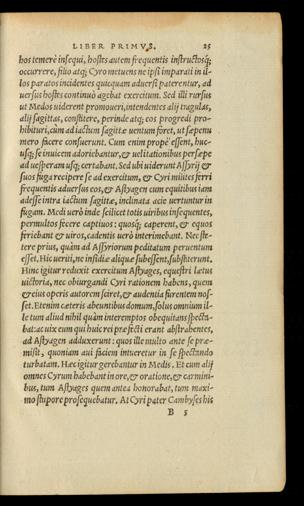 LIBER PRIMVS. 25
hos temerè insequi, hostes autem frequentis instructosq;
occurrere, filio atq; Cyro metuens ne ipsi imparati in il-
los paratos incidentes quicquam aduersi paterentur, ad
uersus hostes continuò agebat exercitum. Sed illi rursus
ut Medos uiderent promoueri, intendentes alij tragulas,
alij sagittas, constitere, perinde atq; eos progredi pro-
hibituri, cùm ad iactum sagittæ uentum foret, ut sæpenu
mero facere consuerunt. Cum enim propè essent, huc-
usq; se inuicem adoriebantur, & uelitationibus persæpe
ad uesperam usq; certabant. Sed ubi uiderunt Assyrij &
suos fuga recipere se ad exercitum, & Cyri milites ferri
frequentis aduersus eos, & Astyagen cum equitibus iam
adesse intra iactum sagittæ, inclinata acie uertuntur in
fugam. Medi uerò inde scilicet totis uiribus insequentes,
permultos fecere captiuos: quosq; caperent, & equos
feriebant & uiros, cadentis uerò interimebant. Nec ste-
tere prius, quàm ad Assyriorum peditatum peruentum
esset. Hic ueriti, ne insidiæ aliquæ subessent, substiterunt.
Hinc igitur reduxit exercitum Astyages, equestri lætus
uictoria, nec obiurgandi Cyri rationem habens, quem
& eius operis autorem sciret, & audentia furentem nos-
set. Etenim cæteris abeuntibus domum, solus omnium il-
le tum aliud nihil quàm interemptos obequitans specta-
bat: ac uix eum qui huic rei præfecti erant abstrahentes,
ad Astyagen adduxerunt: quos ille multo ante se præ-
misit, quoniam aui faciem intueretur in se spectando
turbatam. Hæc igitur gerebantur in Medis. Et cum alij
omnes Cyrum habebant in ore, & oratione, & carmini-
bus, tum Astyages quem antea honorabat, tum maxi-
mo stupore prosequebatur. At Cyri pater Cambyses his
B 5